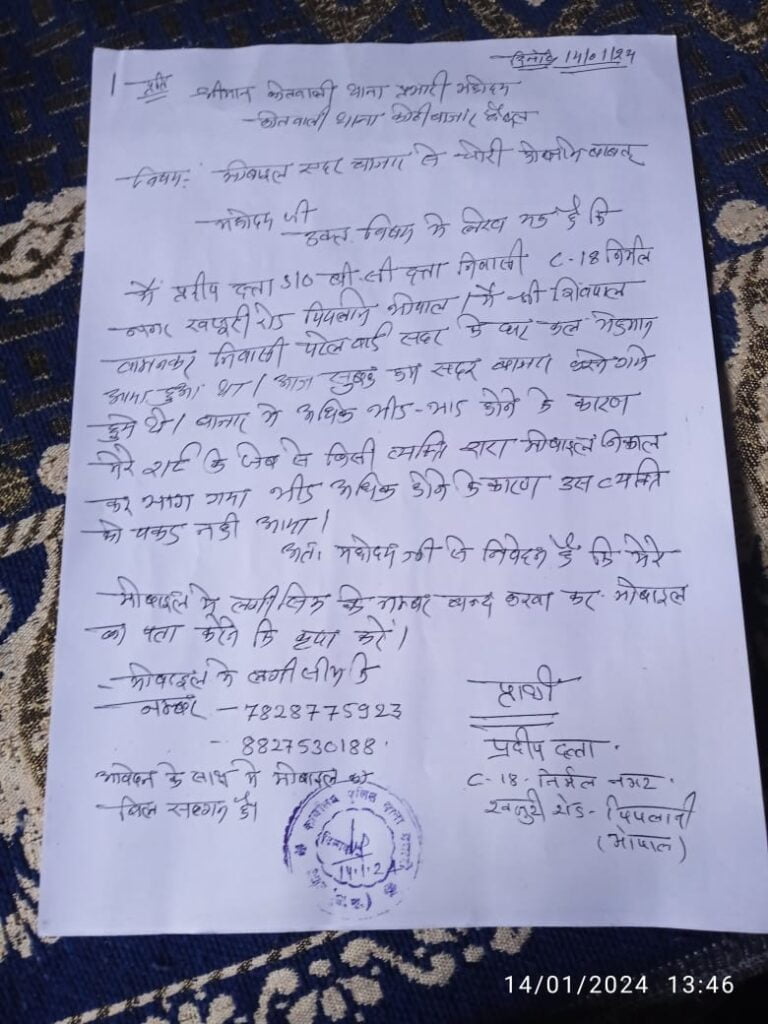 दिनाँक 14/01/24
प्रति श्रीमान कोतवाली थाना प्रभारी महोदय
कोतवाली थाना कोठीबाजार बैतूल
विषय: मोबाइल सदर बाजार से चोरी होजाने बाबत्
महोदय जी
उक्त विषय मे लेख है कि
मैं प्रदीप दत्ता S/O बी.सी दत्ता निवासी C-18 निर्मल
नगर खजूरी रोड पिपलानि भोपाल। मै श्री शिवपाल
निवासी पटेल वार्ड सदर कि घर कल मेहमान
आया हुआ था। आज सुबह हम सदर बाजार करने गये
हुये थे। बाजार मे अधिक भीड-भाड होने के कारण
मेरे शर्ट कि जेब से किसी व्यक्ति द्वारा मोबाइल निकाल
कर भाग गया भीड अधिक होने कि कारण उस व्यक्ति
को पकड नही आया।
अतः महोदय जी से निवेदन है कि मेरे
मोबाइल मे लगी सिम के नम्बर बन्द करवा कर मोबाइल
का पता करने कि कृपा करें।
- मोबाइल मे लगी सीम कि
नम्बर - 7828775923
- 8827530188.
प्रार्थी
प्रदीप दत्ता.
C-18- निर्मल नगर.
खजुरी रोड- पिपलानी
(भोपाल)
आवेदन के साथ मे मोबाइल का
बिल सलग्न है।
14.1.24
14/01/2024 13:46